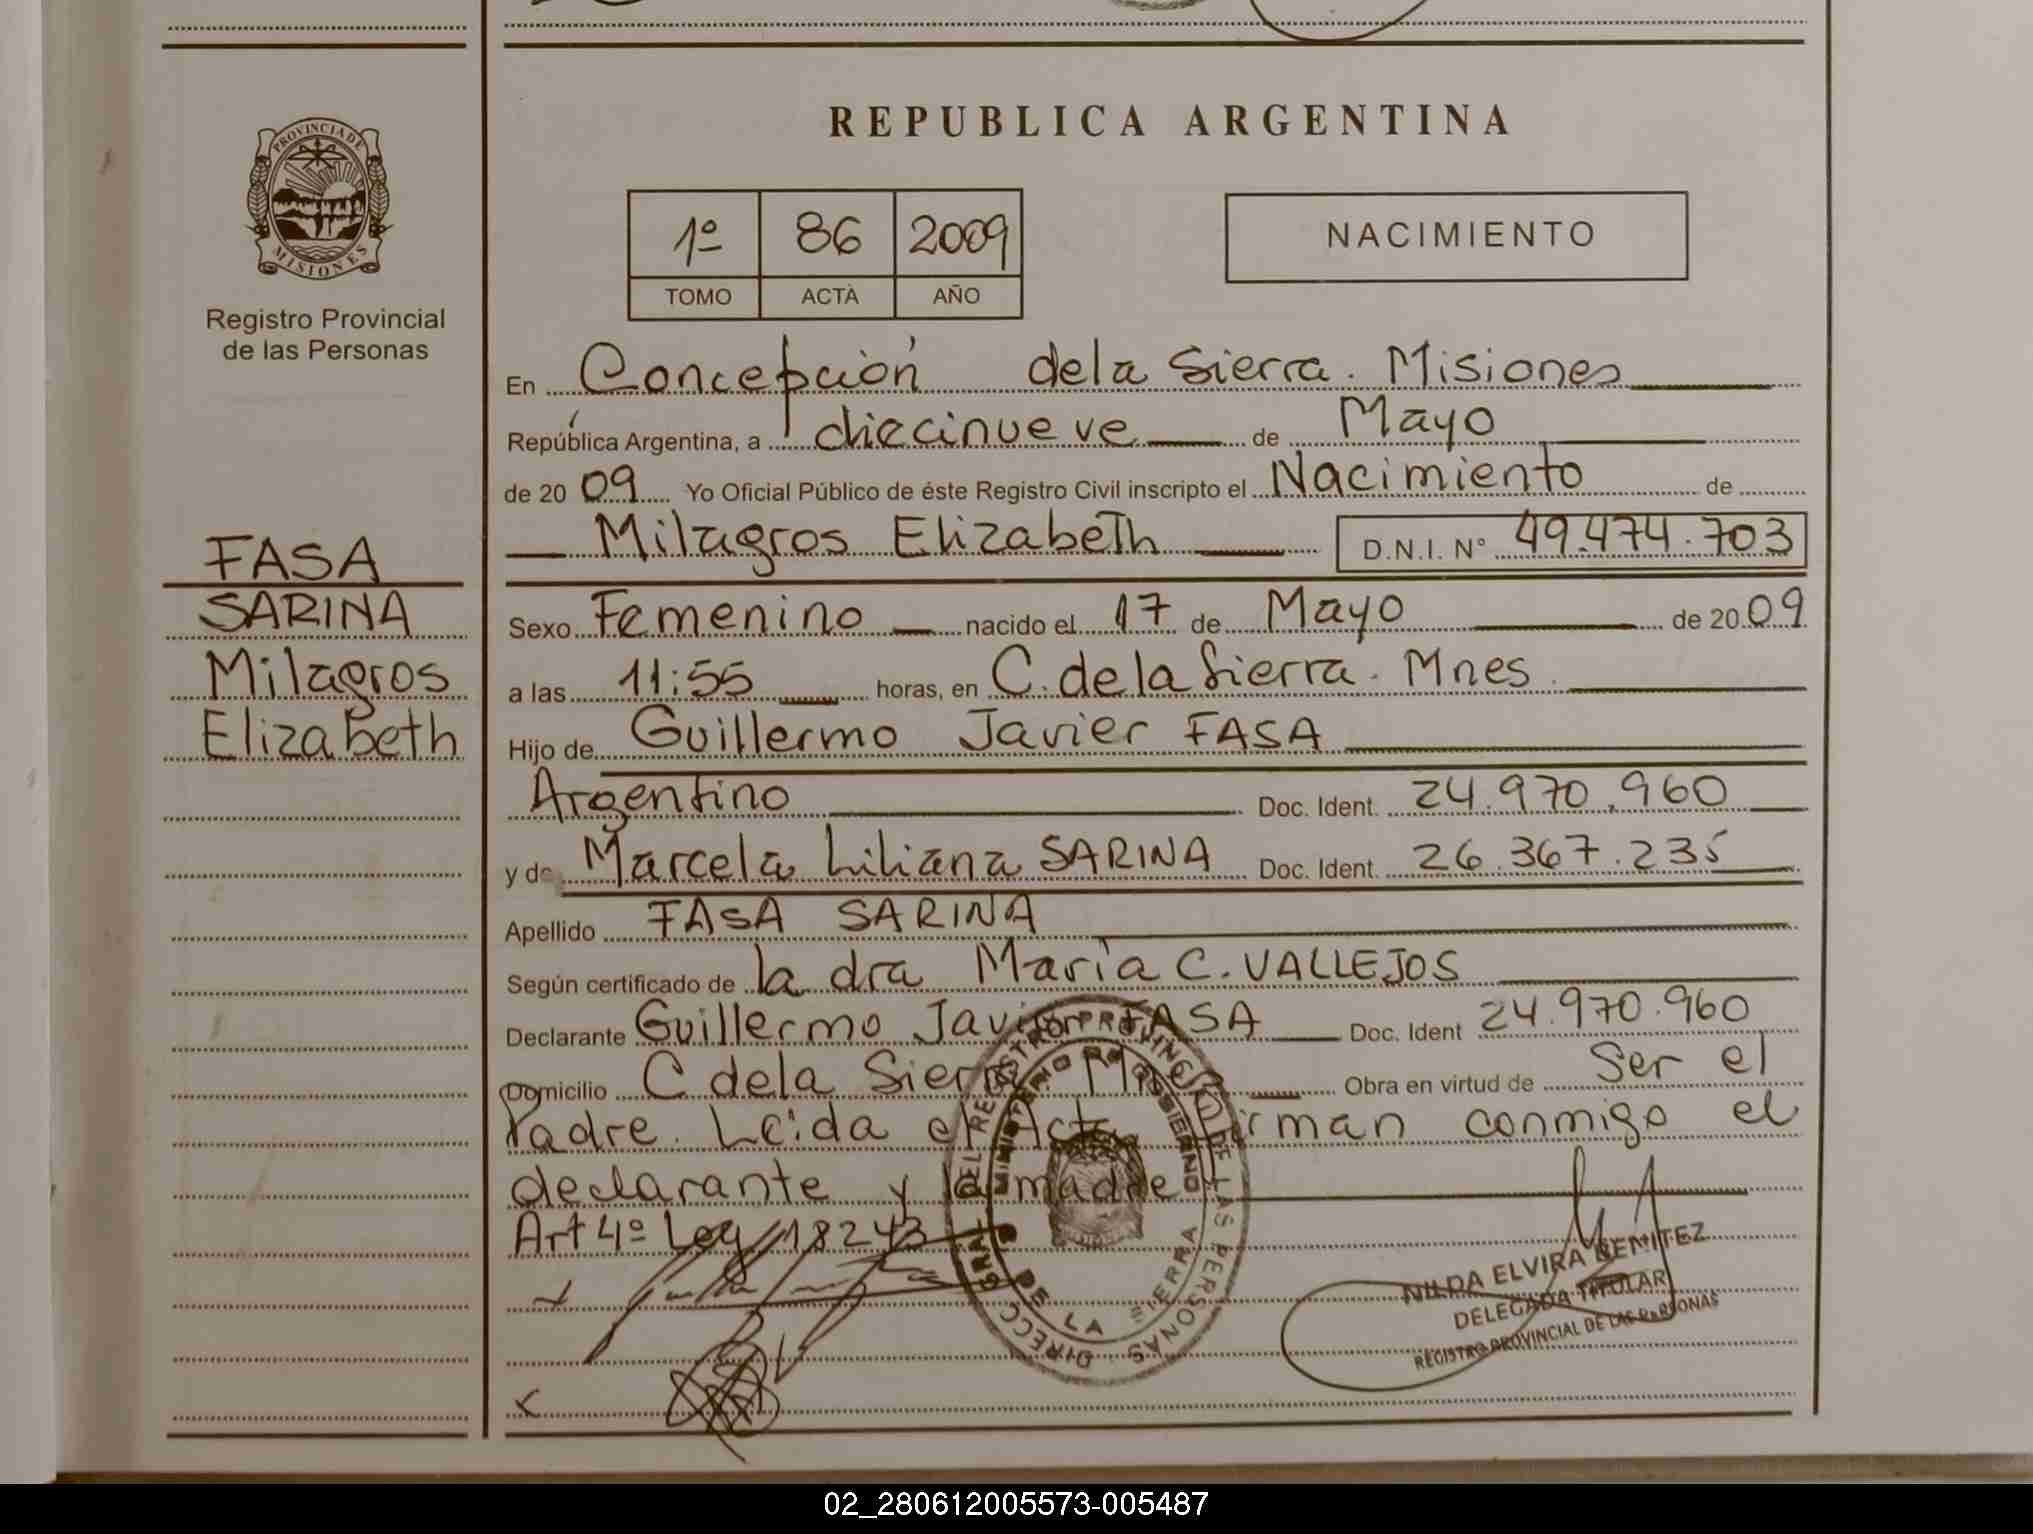 REPUBLICA ARGENTINA
PROVINCIA DE
MISIONES
Registro Provincial
de las Personas
1º 86 2009
TOMO ACTA AÑO
NACIMIENTO
En Concepción de la Sierra. Misiones
República Argentina, a diecinueve de Mayo
de 20 09 Yo Oficial Público de éste Registro Civil inscripto el Nacimiento de
Milagros Elizabeth D.N.I. Nº 49.474.703
FASA
SARINA
Milagros
Elizabeth
Sexo Femenino nacido el 17 de Mayo de 20 09
a las 11:55 horas, en C. de la Sierra. Mnes.
Hijo de Guillermo Javier FASA
Argentino Doc. Ident. 24.970.960
y de Marcela Liliana SARINA Doc. Ident. 26.367.235
Apellido FASA SARINA
Según certificado de la dra María C. VALLEJOS
Declarante Guillermo Javier FASA Doc. Ident 24.970.960
Domicilio C de la Sierra. Obra en virtud de Ser el
Padre. Leída el Acta, Firman conmigo el
declarante y la madre
Art 4º Ley 18243
DIRECC GRAL DEL REGISTRO PROVINCIAL DE LAS PERSONAS
MINISTERIO DE GOBIERNO
DE LA SIERRA
NILDA ELVIRA BENITEZ
DELEGADA TITULAR
REGISTRO PROVINCIAL DE LAS PERSONAS
02_280612005573-005487